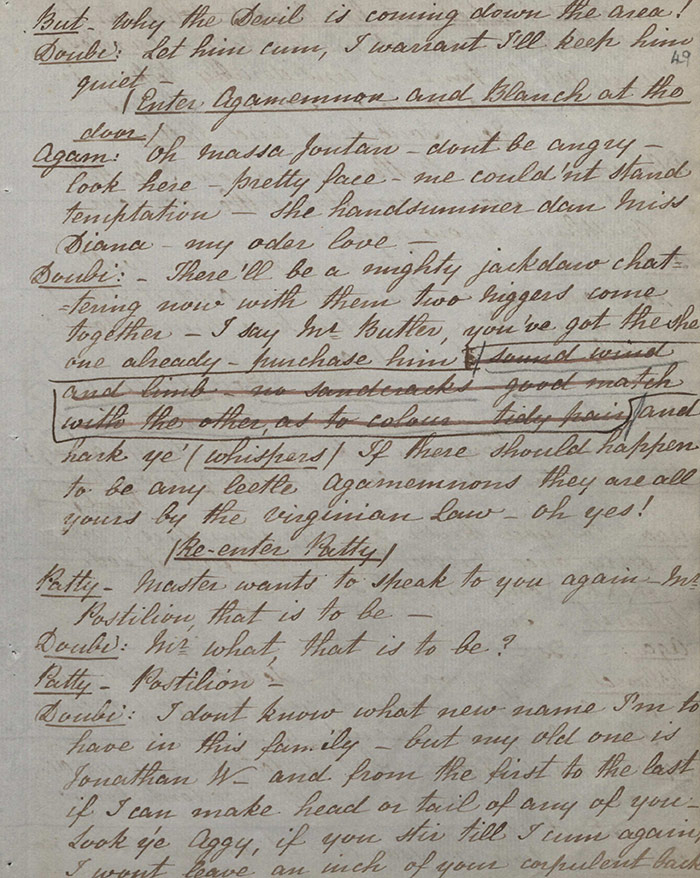 But - Why the Devil is coming down the area!
Doubi: Let him cum, I warrant I'll keep him
49
quiet -
(Enter Agamemnon and Blanch at the
door)
Agam: Oh Massa Jontan - dont be angry -
look here - pretty face - me could'nt stand
temptation - she handsummer dan Miss
Diana - my oder love -
Doubi: - There'll be a mighty jackdaw chat=
=tering now with them two niggers come
together - I say Mr. Butler, you've got the she
one already - purchase him (sound wind
and limb - no sandcracks good match
with the other, as to colour - tidy pair) and
hark ye' (whispers) If there should happen
to be any leetle Agamemnons they are all
yours by the Virginian Law - oh yes!
(Re-enter Patty)
Patty - Master wants to speak to you again - Mr
Postilion, that is to be -
Doubi: Mr what, that is to be?
Patty - Postilion -
Doubi: I dont know what new name I'm to
have in this family - but my old one is
Jonathan W- and from the first to the last
if I can make head or tail of any of you -
Look ye Aggy, if you stir till I cum again,
I wont leave an inch of your corpulent back